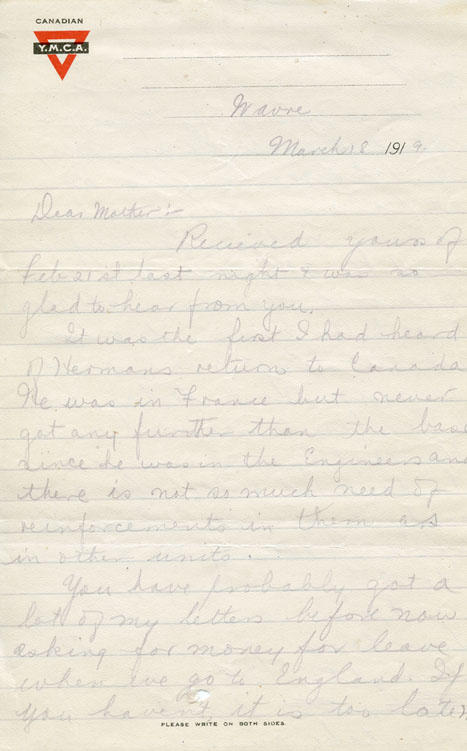 CANADIAN
Y.M.C.A.
Wavre
March 18 1919.
Dear Mother:-
Recieved yours of
Feb 21st last night & was so
glad to hear from you.
It was the first I had heard
of Hermans return to Canada
He was in France but never
got any further than the base
since he was in the Engineers and
there is not so much need of
reinforcements in them as
in other units.
You have probably got a
lot of my letters before now
asking for money for leave
when we go to England. If
you haven't it is too late
PLEASE WRITE ON BOTH SIDES